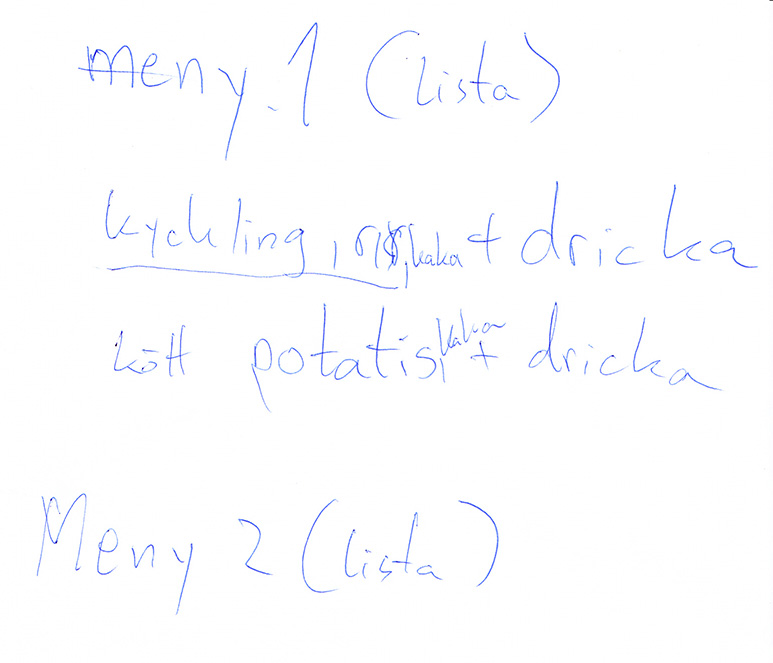 meny.1 (lista)
kyckling, ris, kaka + dricka
kött potatis, kaka + dricka
Meny 2 (lista)